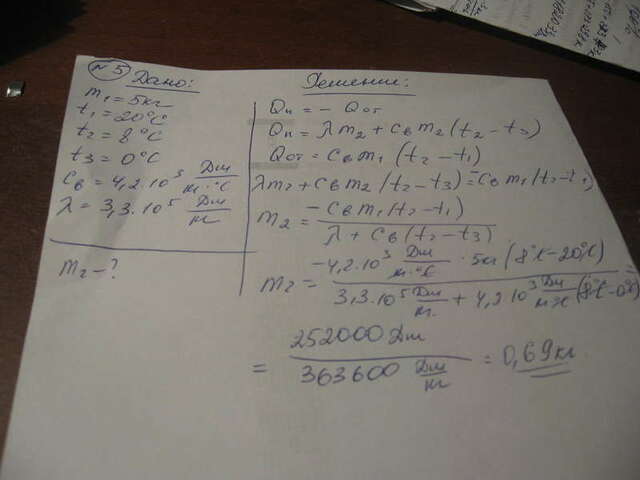 №5 Дано:
m₁ = 5кг
t₁ = 20°C
t₂ = 8°C
t₃ = 0°C
Cв = 4,2·10³ Дж/кг·°C
λ = 3,3·10⁵ Дж/кг
m₂ - ?
Решение:
Qп = - Qот
Qп = λm₂ + Cвm₂(t₂ - t₃)
Qот = Cвm₁(t₂ - t₁)
λm₂ + Cвm₂(t₂ - t₃) = -Cвm₁(t₂ - t₁)
m₂ = -Cвm₁(t₂ - t₁) / λ + Cв(t₂ - t₃)
m₂ = -4,2·10³ Дж/кг·°C · 5кг (8°C - 20°C) / 3,3·10⁵ Дж/кг + 4,2·10³ Дж/кг·°C (8°C - 0°C)
= 252000 Дж / 363600 Дж/кг = 0,69кг